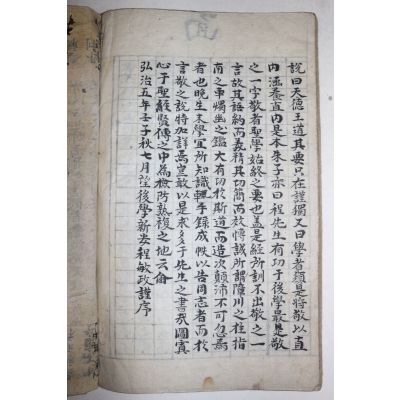 說曰天德王道其要只在謹獨又曰學者須是將敬以直
內涵養直內是本朱子亦曰程先生有功于後學最是敬
之一字敬者聖學始終之要也盖是經所訓不出敬之一
言故其語約而義精其切簡而效博誠所謂障川之柱指
南之車燭幽之鑑大有切扵斯道而造次顚沛不可忽焉
者也晚生末學宜所知識輒手錄成帙以告同志者而扵
言敬之說特加詳焉豈敢以是求多于先生之書㦲圖寘
心于聖經賢傳之中爲檢防熟複之地云爾
弘治五年壬子秋七月望後學新安程敏政謹序